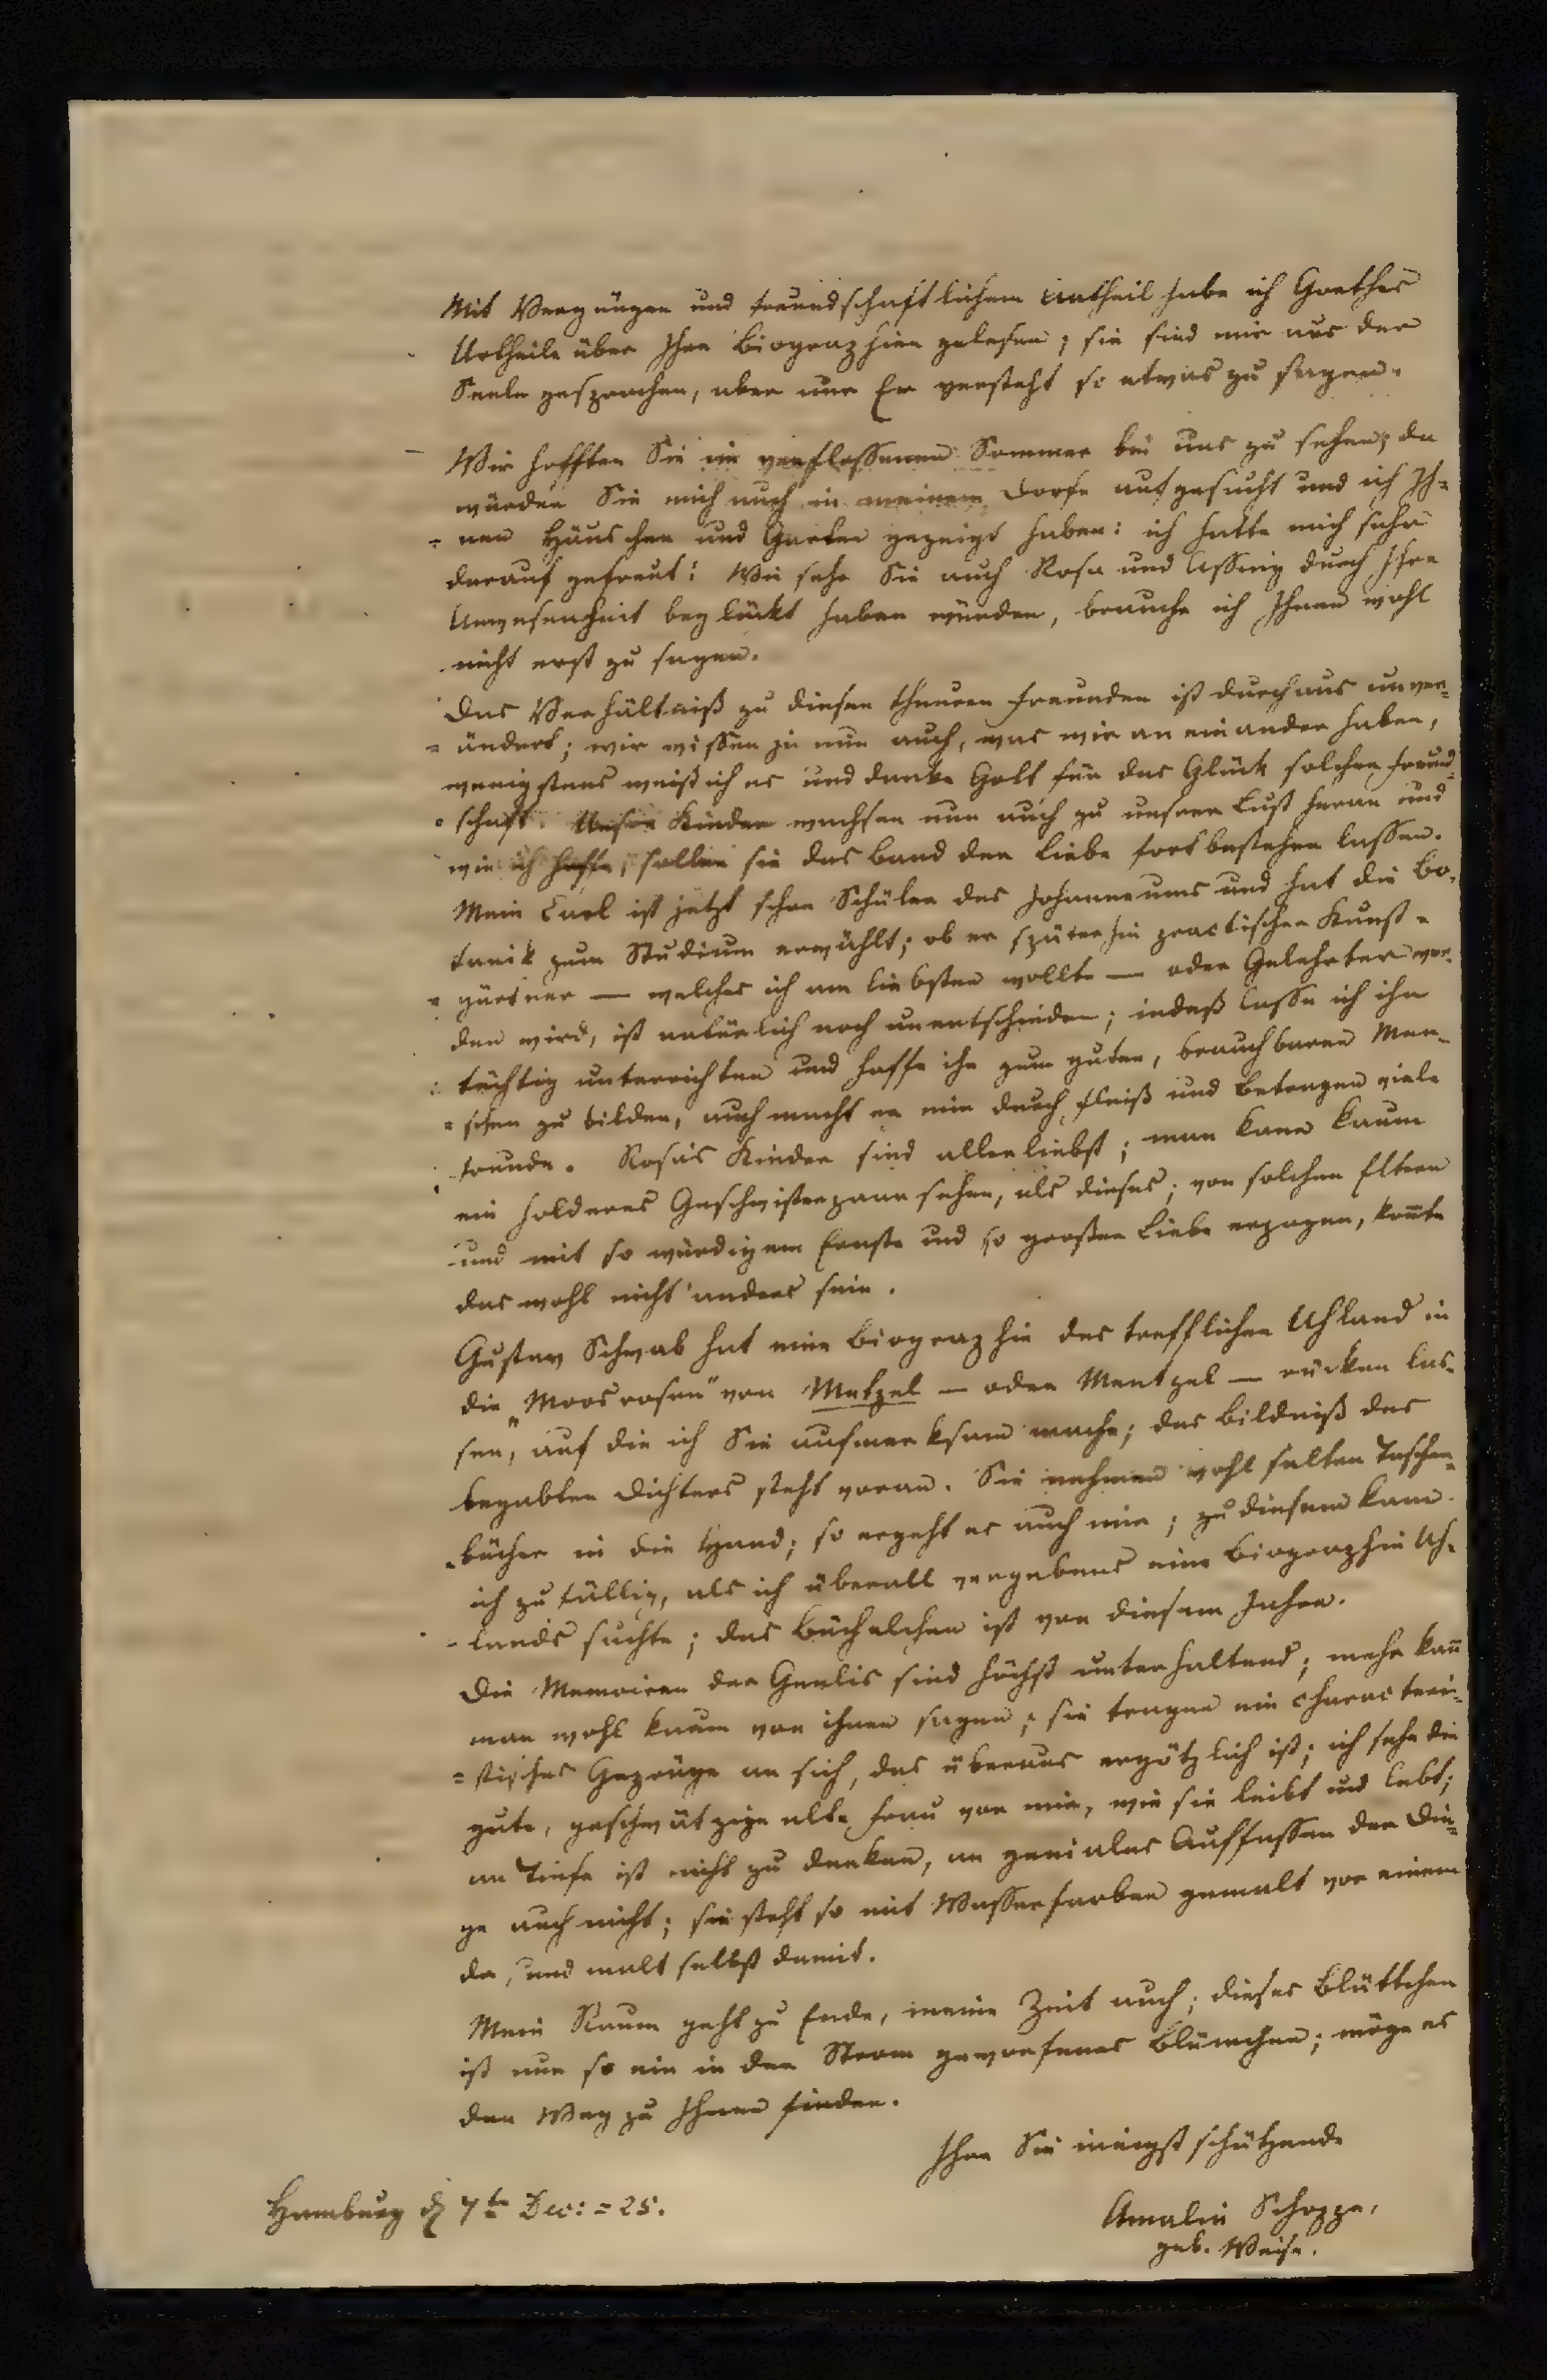 Mit Vergnügen und freundschaftlichem Antheil habe ich Goethes
Urtheile über Ihre Biographien gelesen; sie sind mir aus der
Seele gesprochen, aber nur Er versteht so etwas zu sagen.
Wir hofften Sie im verflossenen Sommer bei uns zu sehen; da
würden Sie mich auch in meinem Dorfe aufgesucht und ich Ih-
nen Häuschen und Garten gezeigt haben: ich hatte mich sehr
darauf gefreut! Wie sehr Sie auch Rosa und Assing durch Ihre
Anwesenheit beglückt haben würden, brauche ich Ihnen wohl
nicht erst zu sagen.
Das Verhältniß zu diesen theuren Freunden ist durchaus unver-
ändert; wir wissen ja nun auch, was wir an einander haben,
wenigstens weiß ich es und danke Gott für das Glück solcher Freund-
schaft. Unsre Kinder wachsen nun auch zu unserer Lust heran und
wie ich hoffe, sollen sie das Band der Liebe fortbestehen lassen.
Mein Carl ist jetzt schon Schüler des Johanneums und hat die Bo-
tanik zum Studium erwählt; ob er späterhin practischer Kunst-
gärtner — welches ich am liebsten wollte — oder Gelehrter wer-
den wird, ist natürlich noch unentschieden; indeß lasse ich ihn
tüchtig unterrichten und hoffe ihn zum guten, brauchbaren Men-
schen zu bilden, auch macht er mir durch Fleiß und Betragen viele
Freude. Rosa's Kinder sind allerliebst; man kann kaum
ein holderes Geschwisterpaar sehen, als dieses; von solchen Eltern
und mit so würdigem Ernste und so großer Liebe erzogen, koñte
das wohl nicht anders sein.
Gustav Schwab hat eine Biographie des trefflichen Uhland in
die „Moosrosen" von Metzel — oder Mentzel — rücken las-
sen, auf die ich Sie aufmerksam mache; das Bildniß des
begabten Dichters steht voran. Sie nehmen wohl selten Taschen-
bücher in die Hand; so ergeht es auch mir; zu diesem kam
ich zufällig, als ich überall vergebens eine Biographie Uh-
lands suchte; das Büchelchen ist von diesem Jahre.
Die Memoiren der Genlis sind höchst unterhaltend; mehr kañ
man wohl kaum von ihnen sagen; sie tragen ein characteri-
stisches Gepräge an sich, das überaus ergötzlich ist; ich sehe die
gute, geschwätzige alte Frau vor mir, wie sie leibt und lebt;
an Tiefe ist nicht zu denken, an geniales Auffassen der Din-
ge auch nicht; sie steht so mit Wasserfarben gemalt vor einem
da, und malt selbst damit.
Mein Raum geht zu Ende, meine Zeit auch; dieses Blättchen
ist nur so ein in den Strom geworfenes Blümchen; möge es
den Weg zu Ihnen finden.
Ihre Sie innigst schätzende
Amalie Schoppe,
geb. Weise.
Hamburg d 7t Dec: = 25.